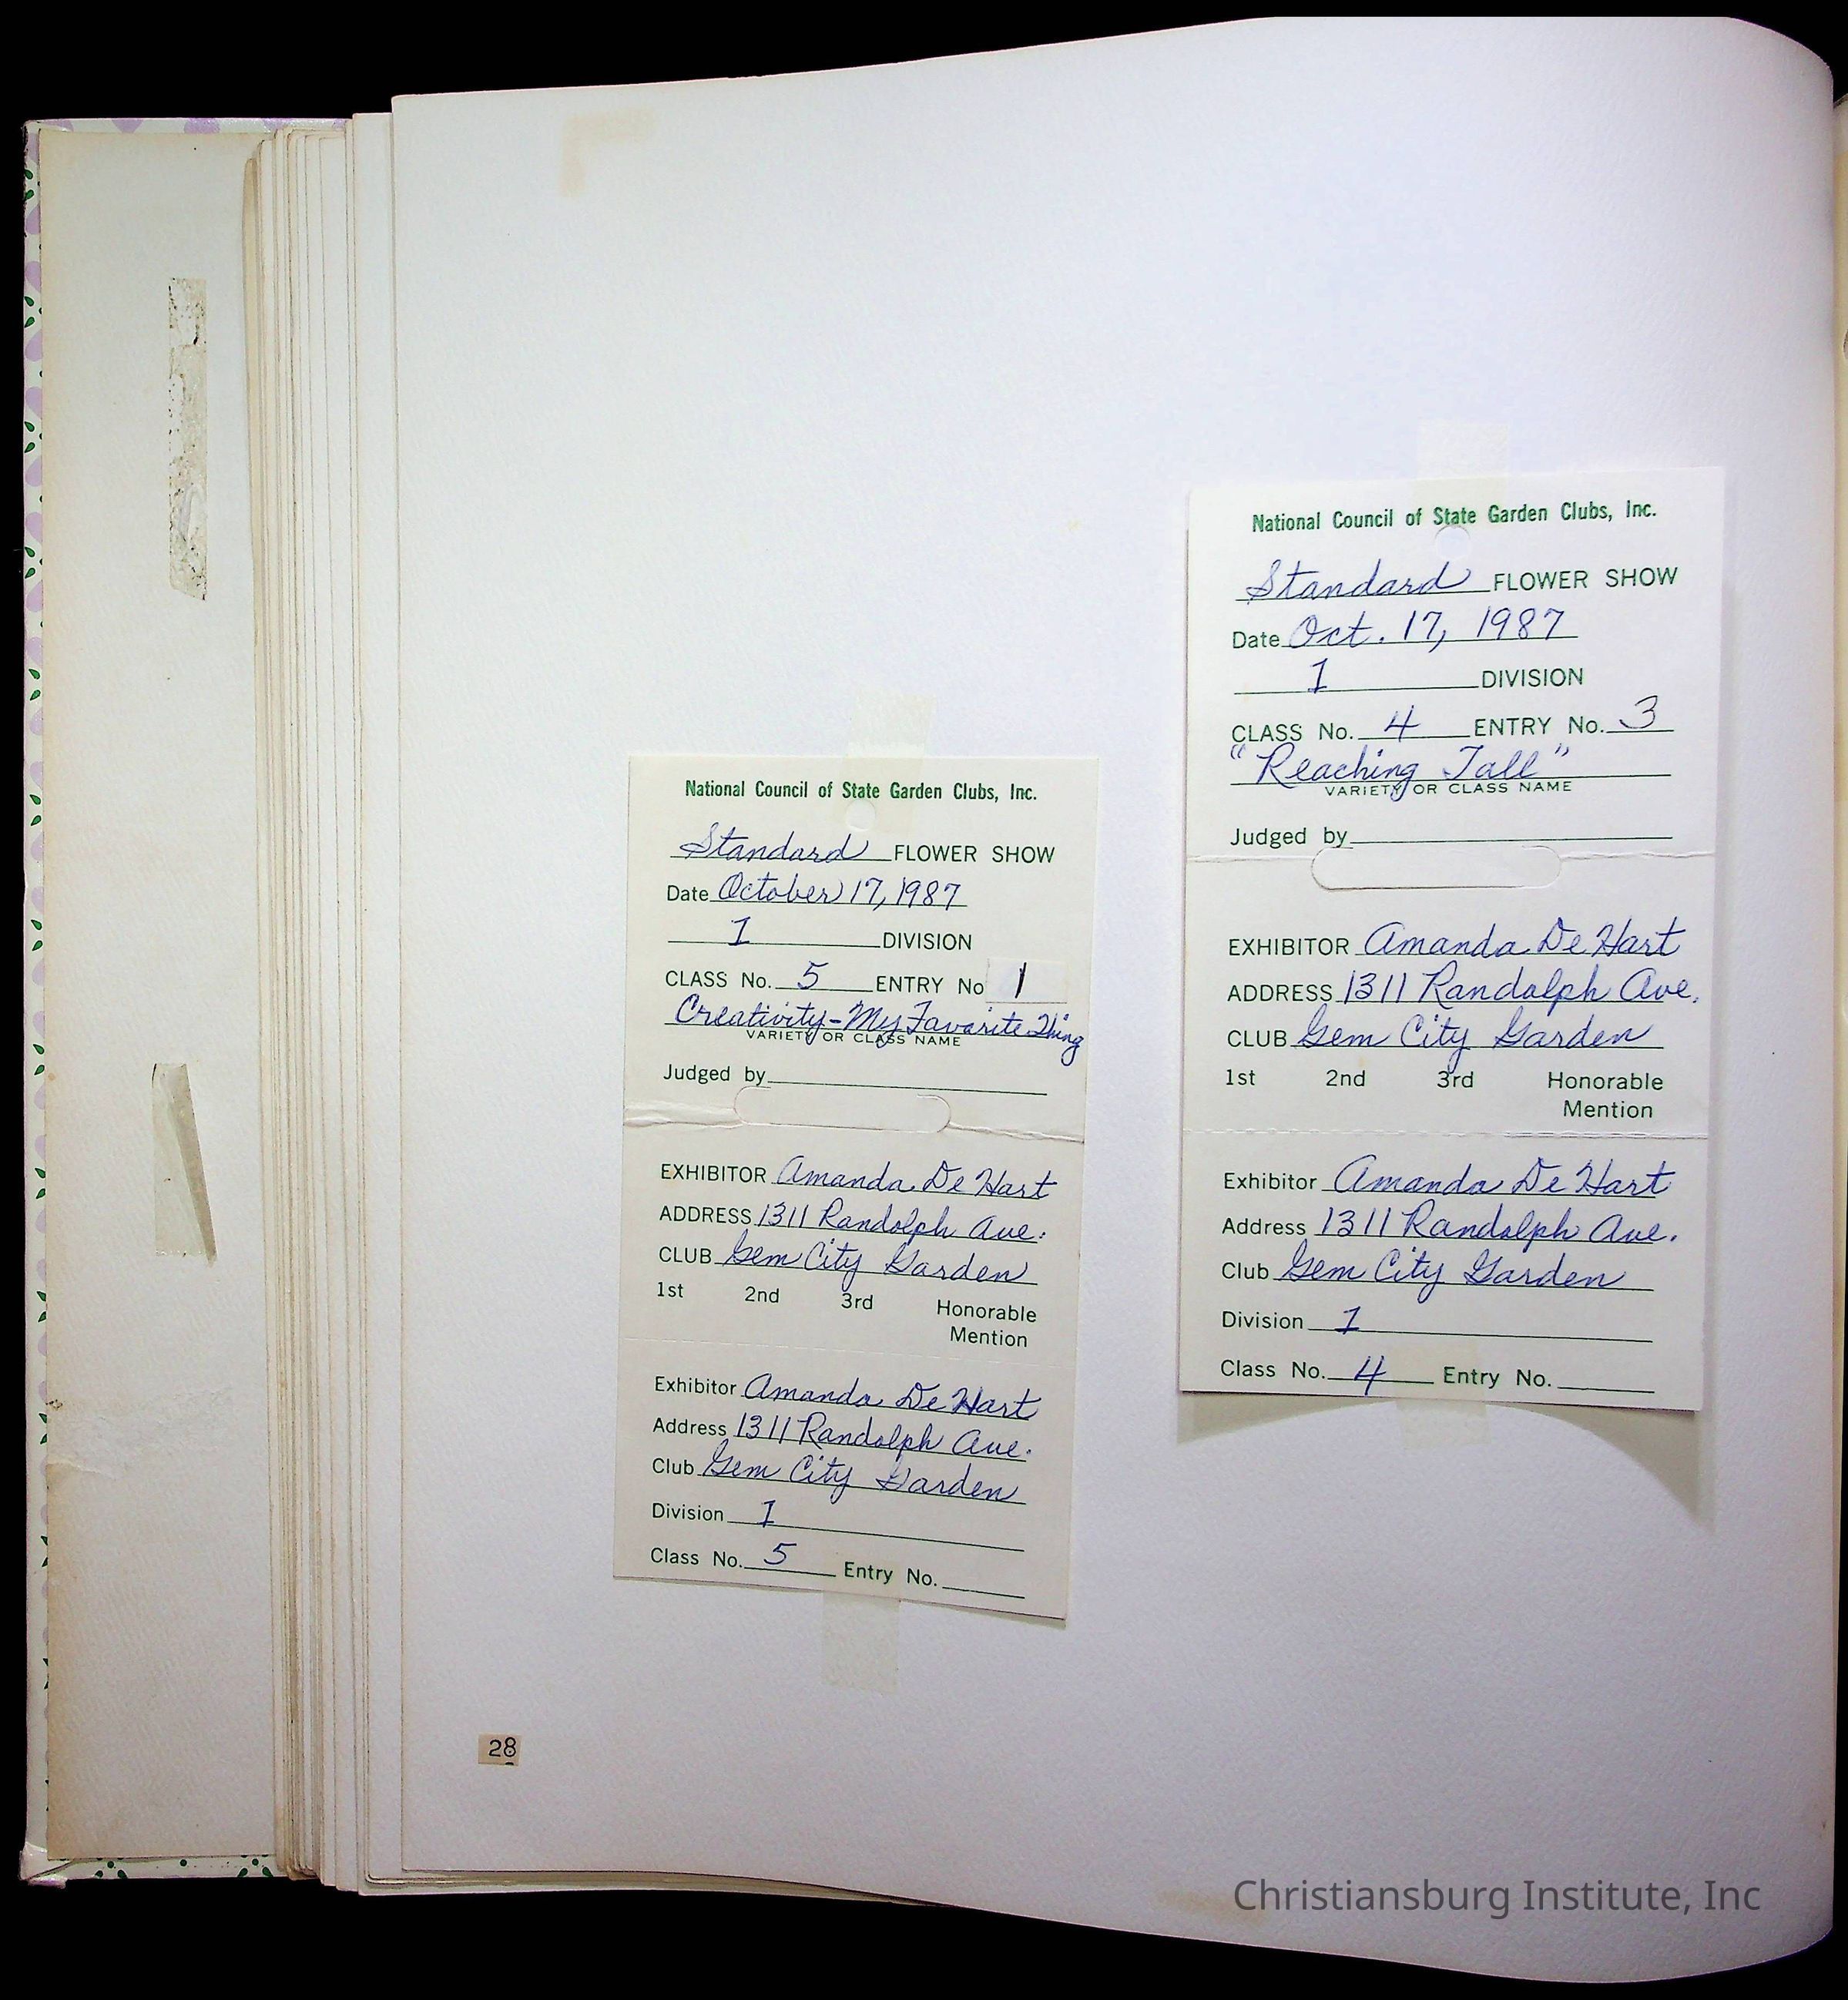 National Council of State Garden Clubs, Inc.
Standard FLOWER SHOW
Date October 17, 1987
1 DIVISION
CLASS No. 5 ENTRY No 1
Creativity-My Favorite Thing
VARIETY OR CLASS NAME
Judged by
EXHIBITOR Amanda De Hart
ADDRESS 1311 Randolph Ave.
CLUB Gem City Garden
1st 2nd 3rd Honorable
Mention
Exhibitor Amanda De Hart
Address 1311 Randolph Ave.
Club Gem City Garden
Division 1
Class No. 5 Entry No.
National Council of State Garden Clubs, Inc.
Standard FLOWER SHOW
Date Oct. 17, 1987
1 DIVISION
CLASS No. 4 ENTRY No. 3
"Reaching Tall"
VARIETY OR CLASS NAME
Judged by
EXHIBITOR Amanda De Hart
ADDRESS 1311 Randolph Ave.
CLUB Gem City Garden
1st 2nd 3rd Honorable
Mention
Exhibitor Amanda De Hart
Address 1311 Randolph Ave.
Club Gem City Garden
Division 1
Class No. 4 Entry No.
28
Christiansburg Institute, Inc